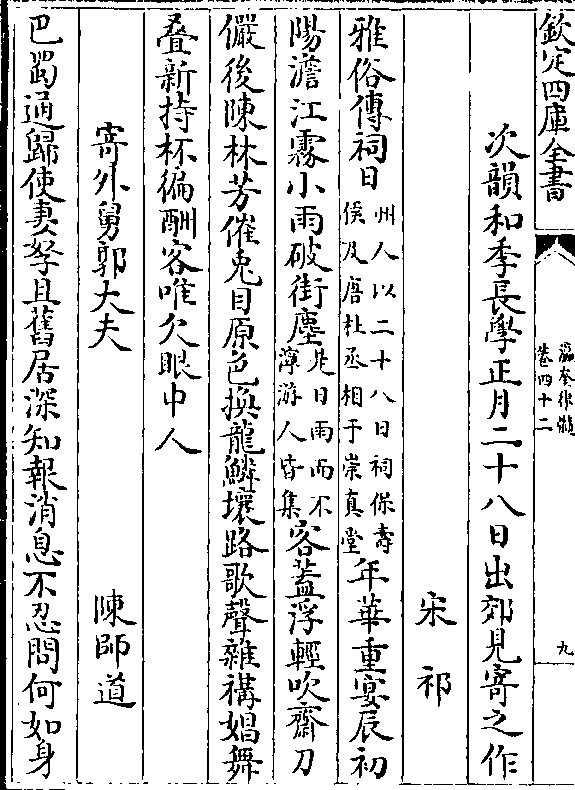 欽定四庫全書
瀛奎律髓
卷四十二
九
次韻和季長學正月二十八日出郊見寄之作
宋祁
雅俗傳祠日州人以二十八日祠保壽侯及唐杜丞相于崇真堂年華重宴辰初
陽澹江霧小雨破街塵是日雨而不濘游人皆集客蓋浮輕吹齋刀
儼後陳林芳催兎目原色換龍鱗壤路歌聲雜禂娼舞
疊新持杯徧酬客唯欠眼中人
寄外舅郭大夫 陳師道
巴蜀通歸使妻孥且舊居深知報消息不忍問何如身